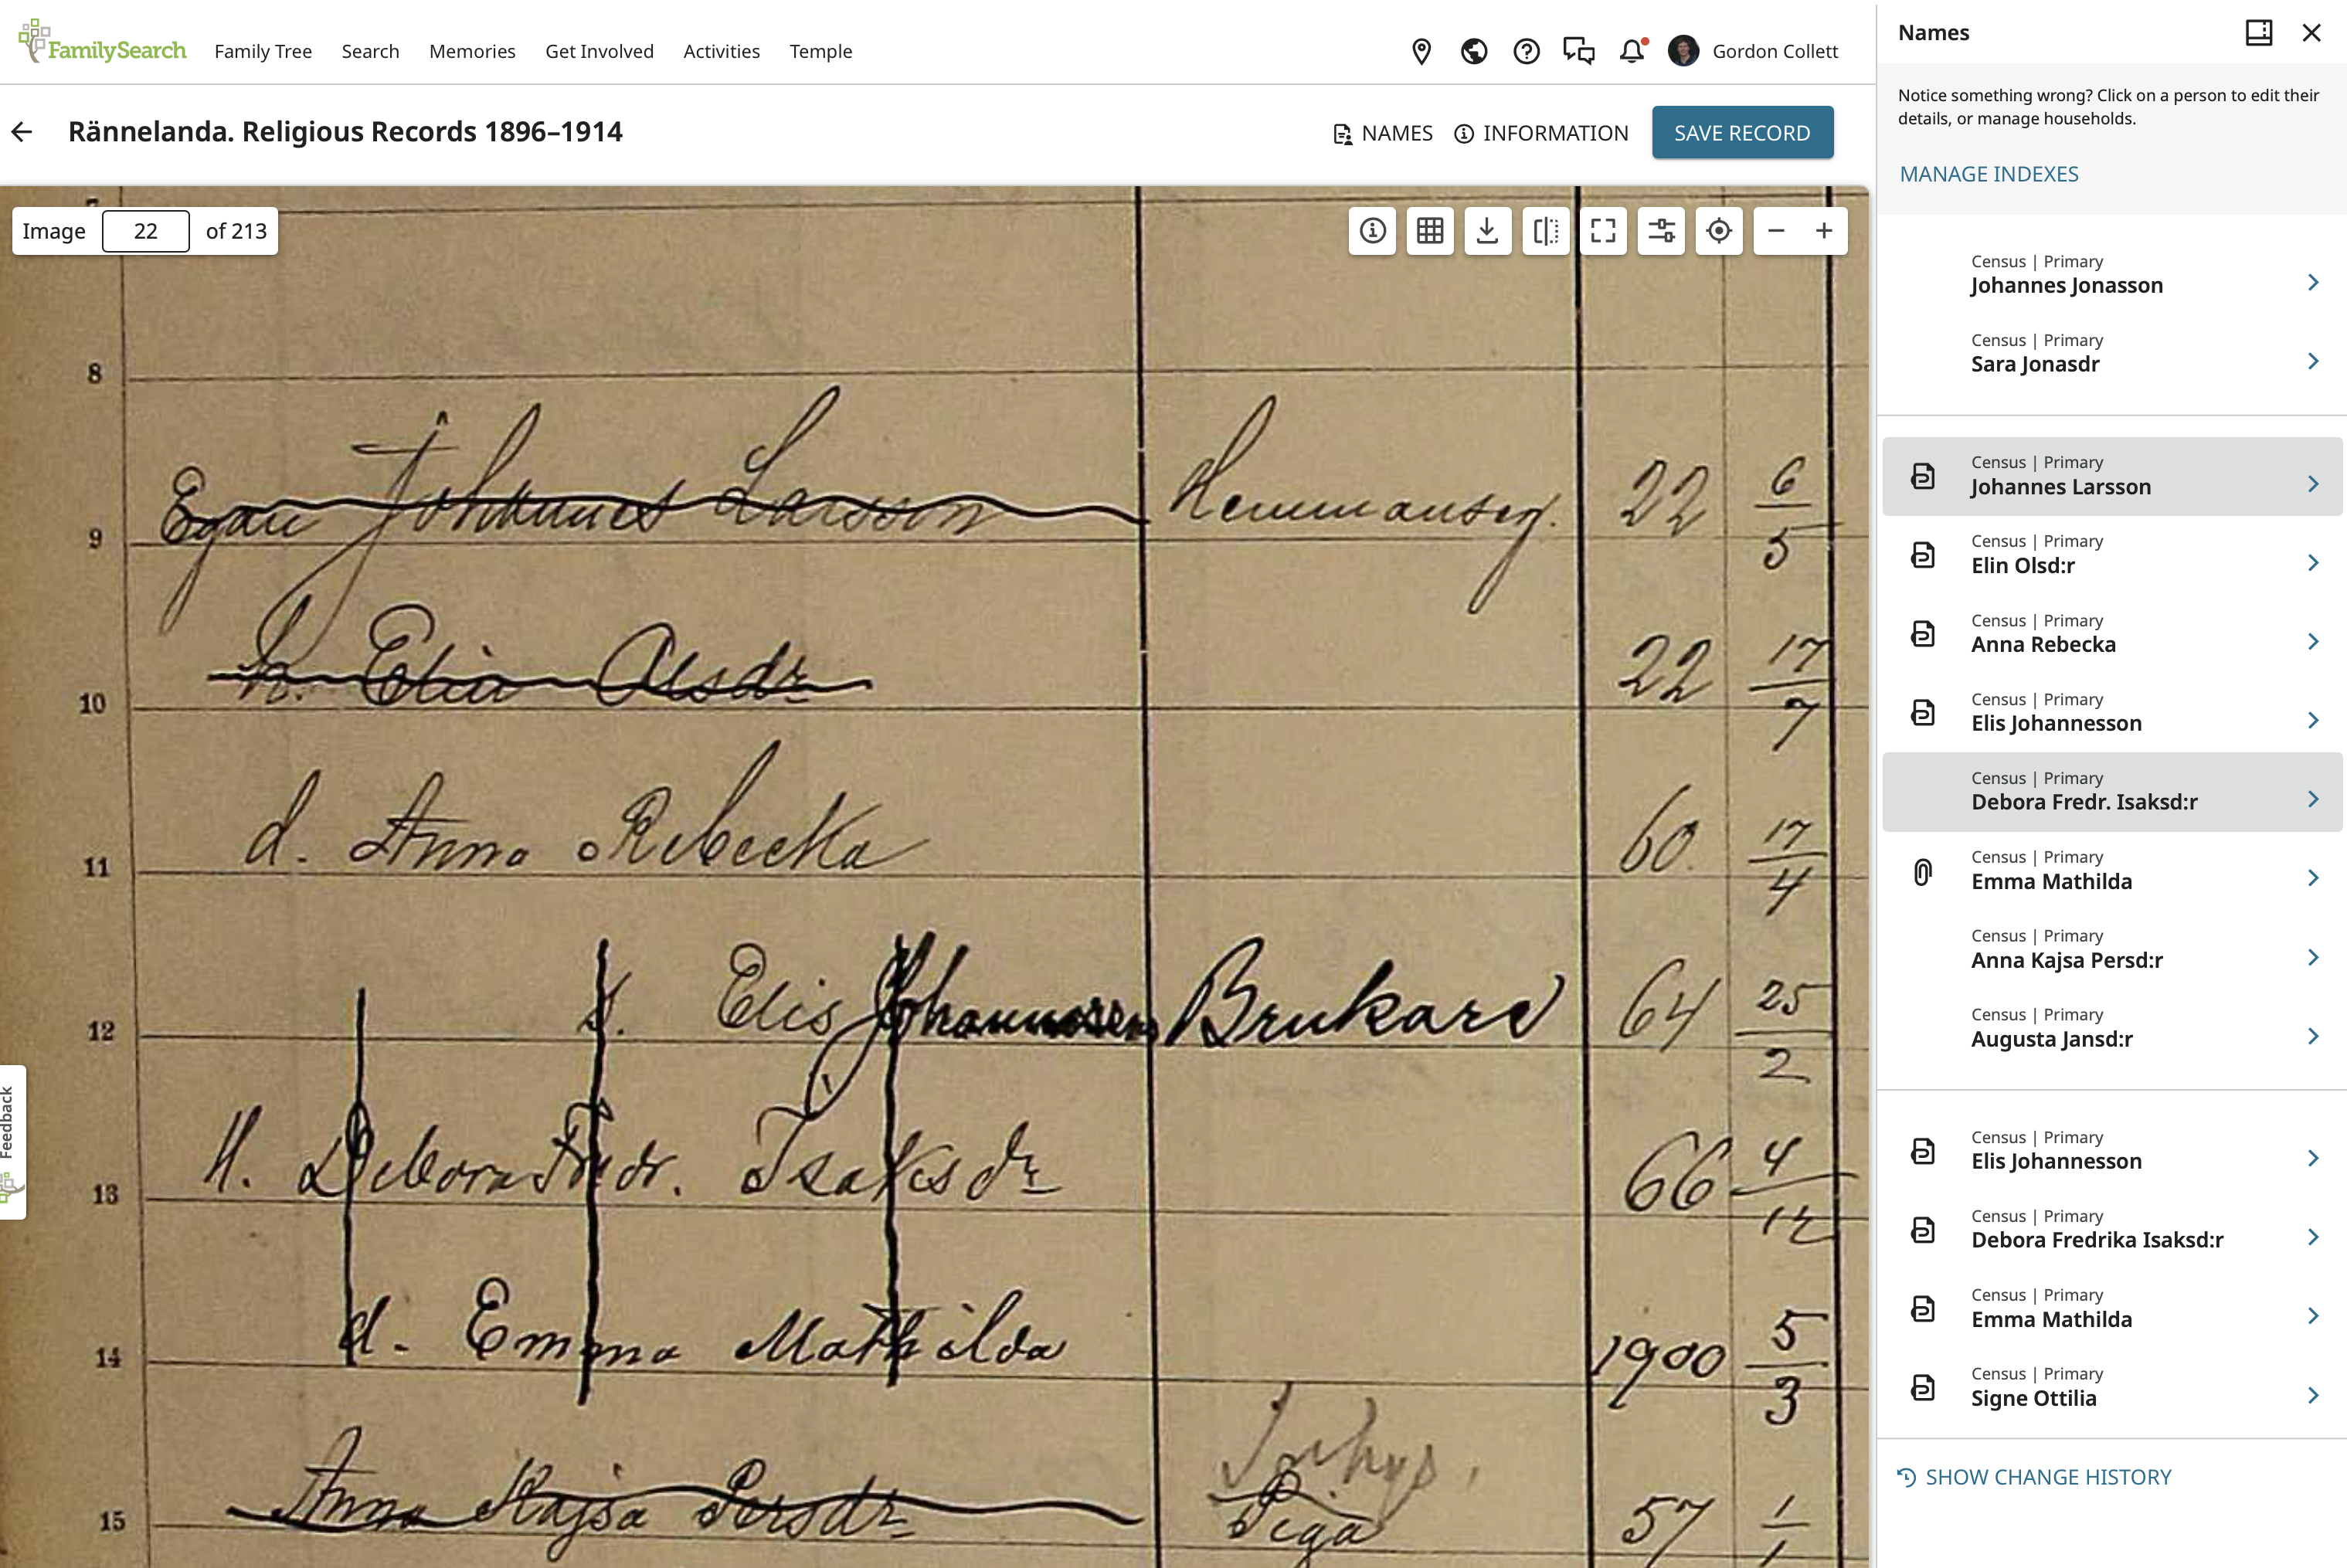 FamilySearch Family Tree Search Memories Get Involved Activities Temple Gordon Collett
Rännelanda. Religious Records 1896–1914 NAMES INFORMATION SAVE RECORD
Image 22 of 213
8
9 Egare Johannes Larsson Hemmanseg. 22 6/5
10 h. Elin Olsdr 22 17/7
11 d. Anna Rebecka 60. 17/4
12 s. Elis Johannesson Brukare 64 25/2
13 H. Debora Fredr. Isaksdr 66 4/12
14 d. Emma Mathilda 1900 5/3
Inhys.
15 Anna Kajsa Persdr Piga 57 1/1
Feedback
Names
Notice something wrong? Click on a person to edit their
details, or manage households.
MANAGE INDEXES
Census | Primary
Johannes Jonasson
Census | Primary
Sara Jonasdr
Census | Primary
Johannes Larsson
Census | Primary
Elin Olsd:r
Census | Primary
Anna Rebecka
Census | Primary
Elis Johannesson
Census | Primary
Debora Fredr. Isaksd:r
Census | Primary
Emma Mathilda
Census | Primary
Anna Kajsa Persd:r
Census | Primary
Augusta Jansd:r
Census | Primary
Elis Johannesson
Census | Primary
Debora Fredrika Isaksd:r
Census | Primary
Emma Mathilda
Census | Primary
Signe Ottilia
SHOW CHANGE HISTORY